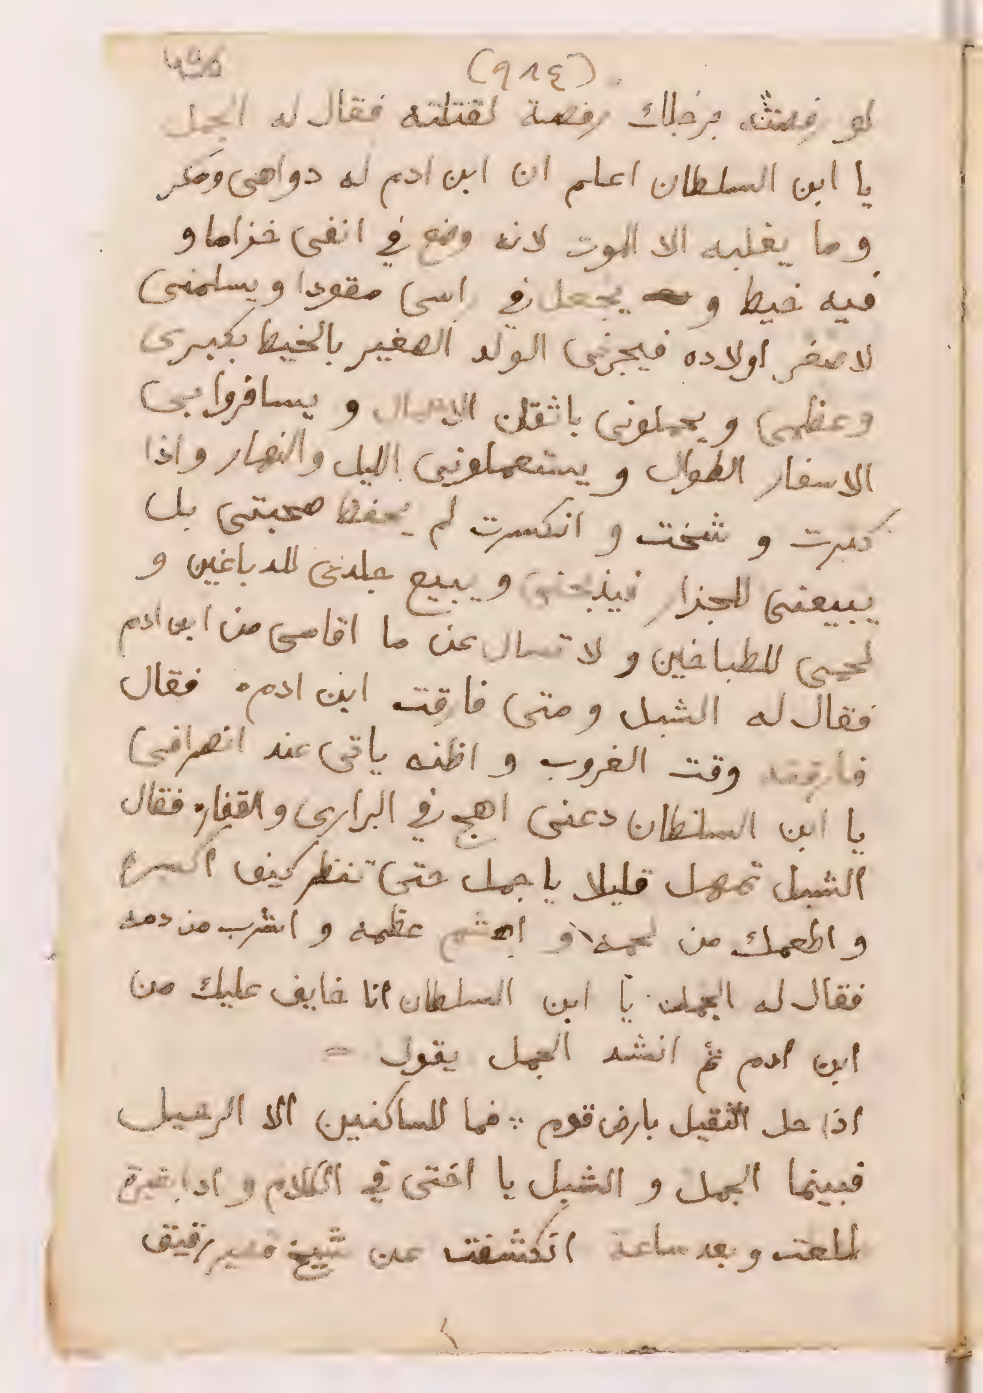 (٩٨٤)
لو رفصته برجلك رفصة لقتلته فقال له الجمل
يا ابن السلطان اعلم ان ابن ادم له دواهى ومكر
وما يغلبه الا الموت لانه وضع في انفى خزاما و
فيه خيط و يجعل في راسى مقودا ويسلمنى
لاصغر اولاده فيجرنى الولد الصغير بالخيط بكبرى
وعظمى و يحملونى باثقل الاحمال و يسافروا بى
الاسفار الطوال و يستعملونى الليل والنهار واذا
كبرت و شخت و انكسرت لم يحفظ صحبتى بل
يبيعنى للجزار فيذبحنى ويبيع جلدى للدباغين و
لحمى للطباخين و لا تسال عن ما اقاسى من ابن ادم
فقال له الشبل ومتى فارقت ابن ادم. فقال
فارقته وقت الغروب و اظنه ياتى عند انصرافى
يا ابن السلطان دعنى اهج في البرارى والقفار. فقال
الشبل تمهل قليلا يا جمل حتى تنظر كيف اكسره
و اطعمك من لحمه و اهشم عظمه و اشرب من دمه
فقال له الجمل يا ابن السلطان انا خايف عليك من
ابن ادم ثم انشد الجمل يقول =
اذا حل الثقيل بارض قوم ∴ فما للساكنين الا الرحيل
فبينما الجمل و الشبل يا اختى في الكلام و اذا بغبرة
طلعت و بعد ساعة انكشفت عن شيخ قصير رقيق